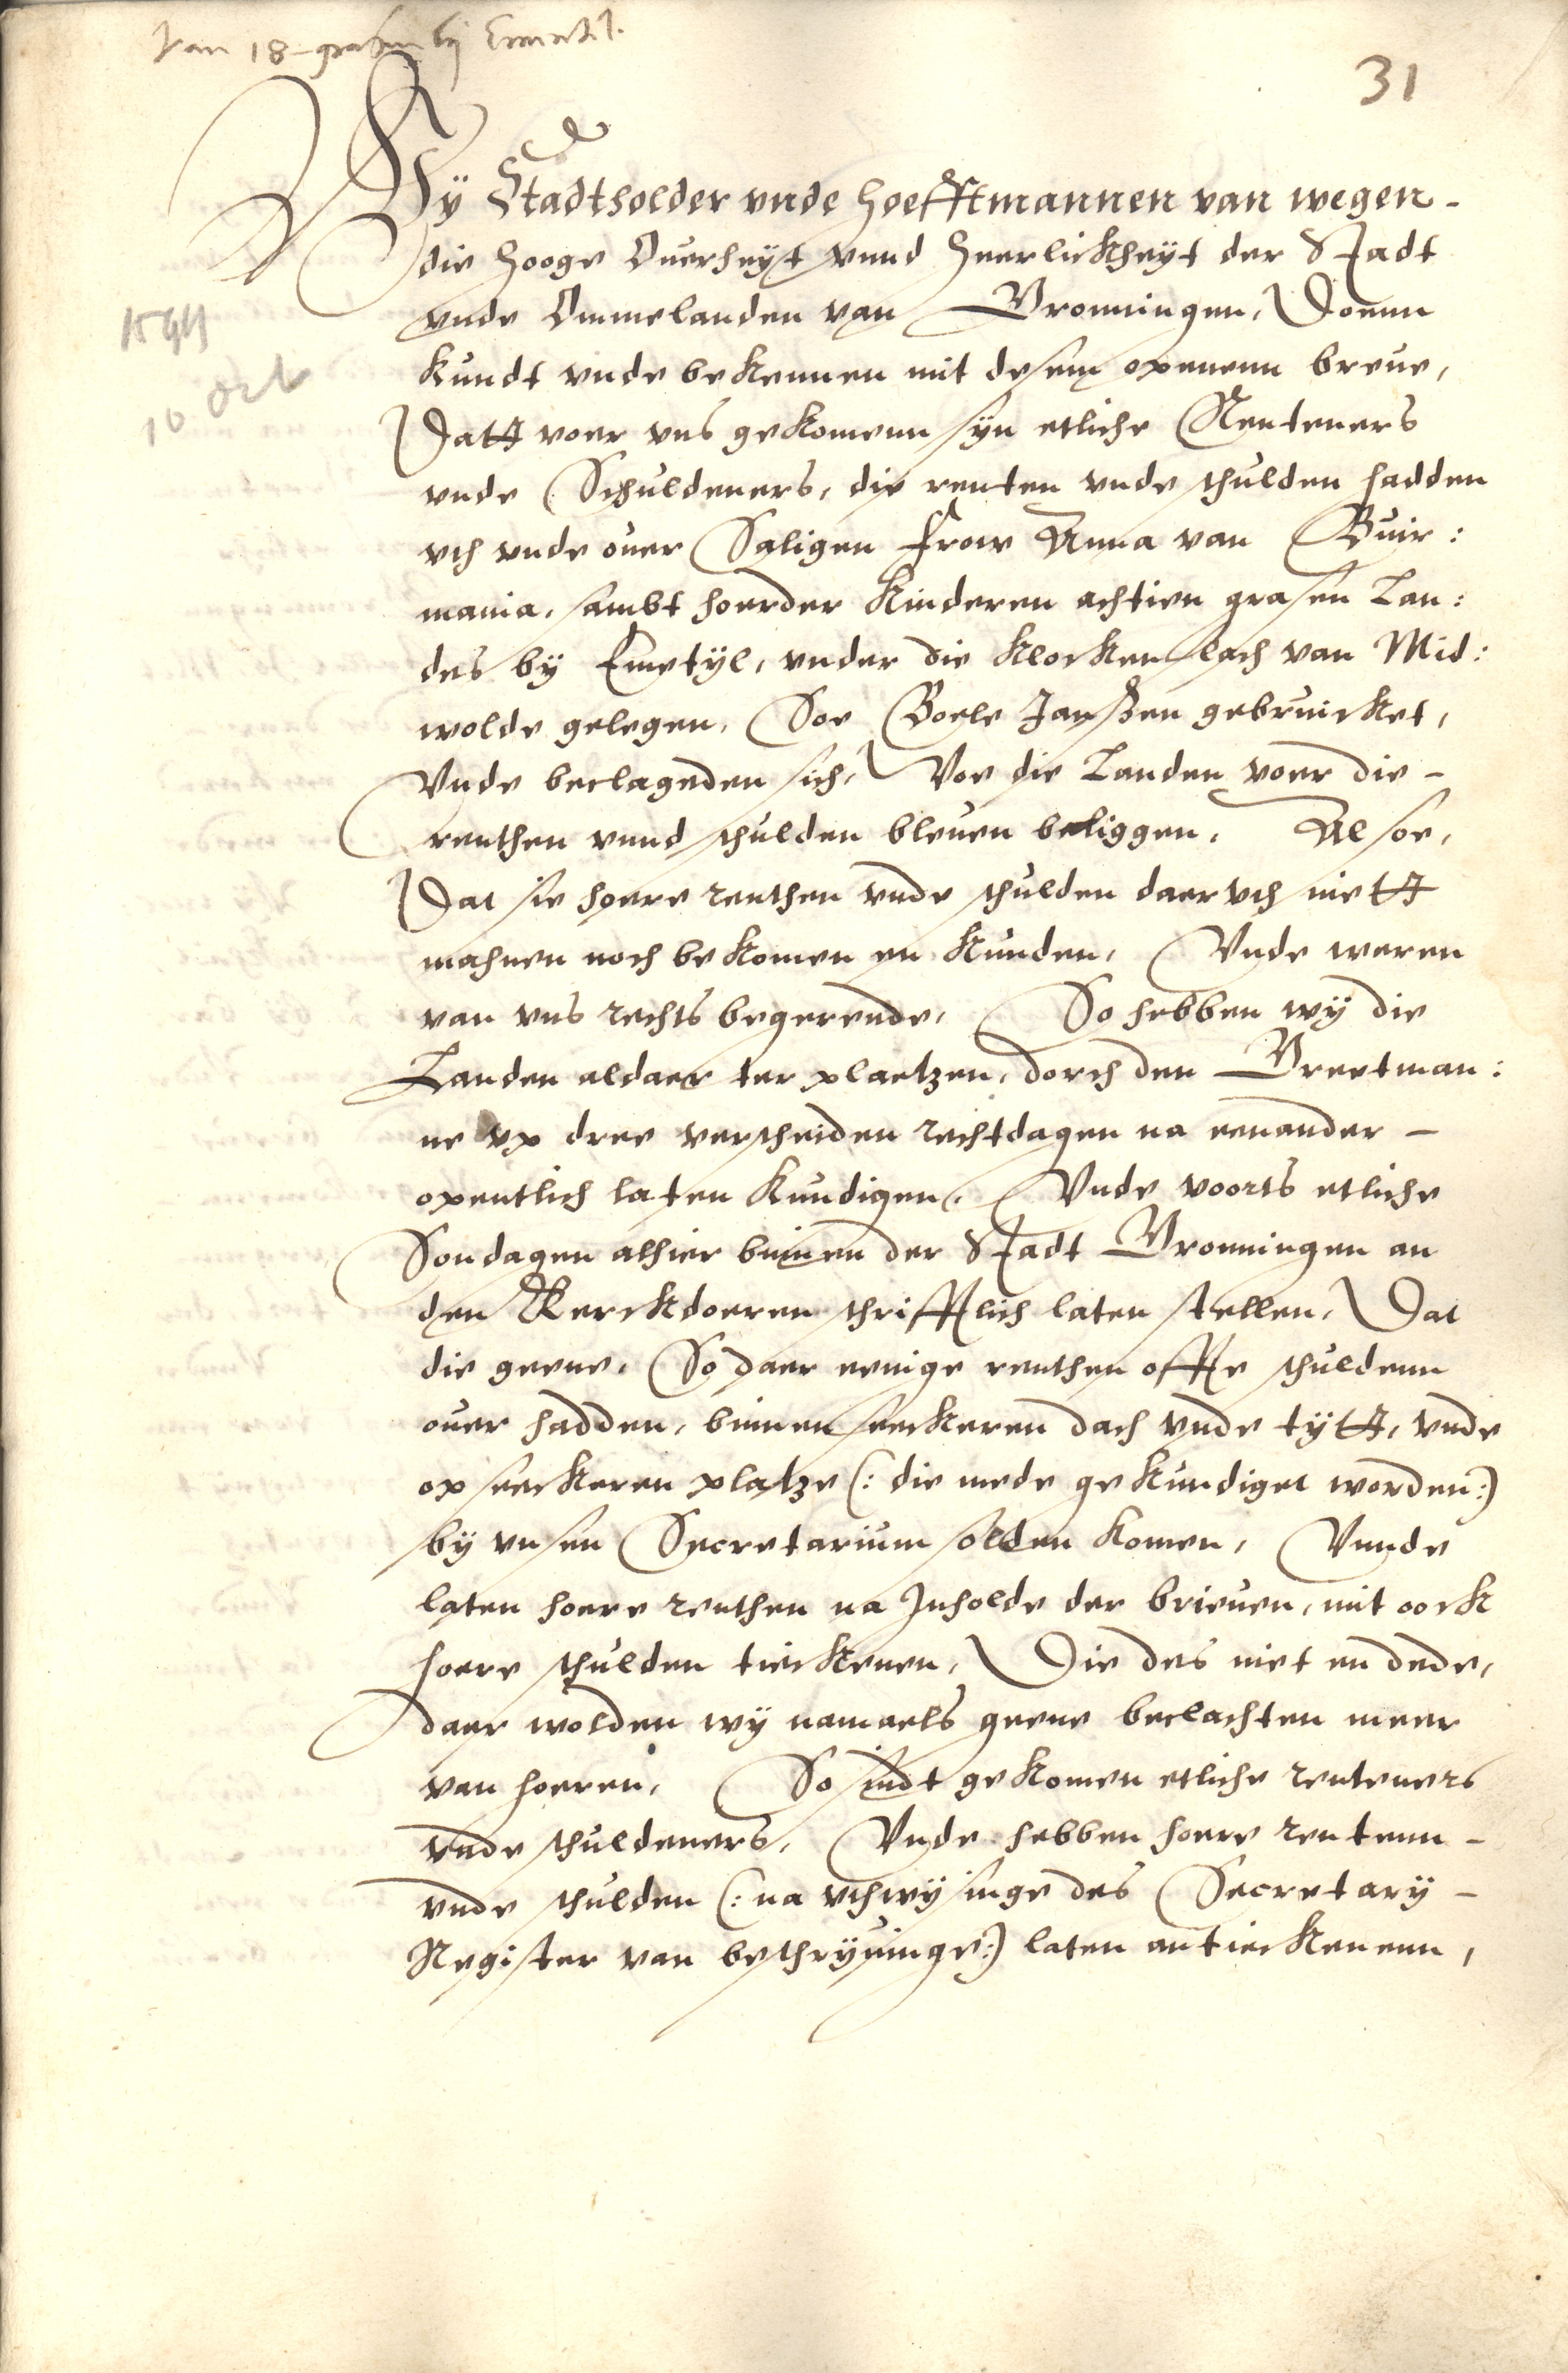 Van 18 grasen bij Emetil.
31
Wÿ Stadtholder vnde Hoefftmannen van wegen -
die Hooge Ouerheyt vnnd Heerlickheyt der Stadt
vnde Ommelanden van Gronningen, Doenn
kundt vnde bekennen mit desem openenn breue,
1599
10 Oct
Datt voer vns gekomenn syn etliche Renteners
vnde Schuldeners, die renten vnde schulden hadden
vth vnde ouer Saligen Frow Anna van Buir:
mania, sambt hoerder Kinderen achtien grasen Lan:
des by Emetÿl, vnder die Klockenslach van Mid:
wolde gelegen, Soe Boele Janßen gebruicket,
Vnde beclageden sich, Woe die Landen voer die -
renthen vnnd schulden bleuen beliggen, Alsoe,
Dat sie hoere renthen vnde schulden daer vth niett
mahnen noch bekomen en kunden, Vnde weren
van vns rechts begerende, So hebben wÿ die
Landen aldaer ter plaetzen, dorch den Greetman:
ne vp dree verscheiden rechtdagen na eenander -
opentlich laten kundigen, Vnde voorts etliche
Sondagen alhier binnen der Stadt Gronningen an
den Kerckdoeren schrifftlich laten stellen, Dat
die geene, So daer eenige renthen offte schuldenn
ouer hadden, binnen seeckeren dach vnde tÿtt, vnde
op seeckeren platze (: die mede gekundiget worden:)
bÿ vnsen Secretarium solden komen, Vnnde
laten hoere renthen na Inholde der brieuen, mit oock
hoere schulden tieckenen, Die des niet en dede,
daer wolden wÿ namaels geene beclachten meer
van hoeren, So sindt gekomen etliche renteners
vnde schuldeners, Vnde hebben hoere rentenn -
vnde schulden (: na vthwÿsinge des Secretarÿ -
Register van beschrÿuinge:) laten antieckenenn,